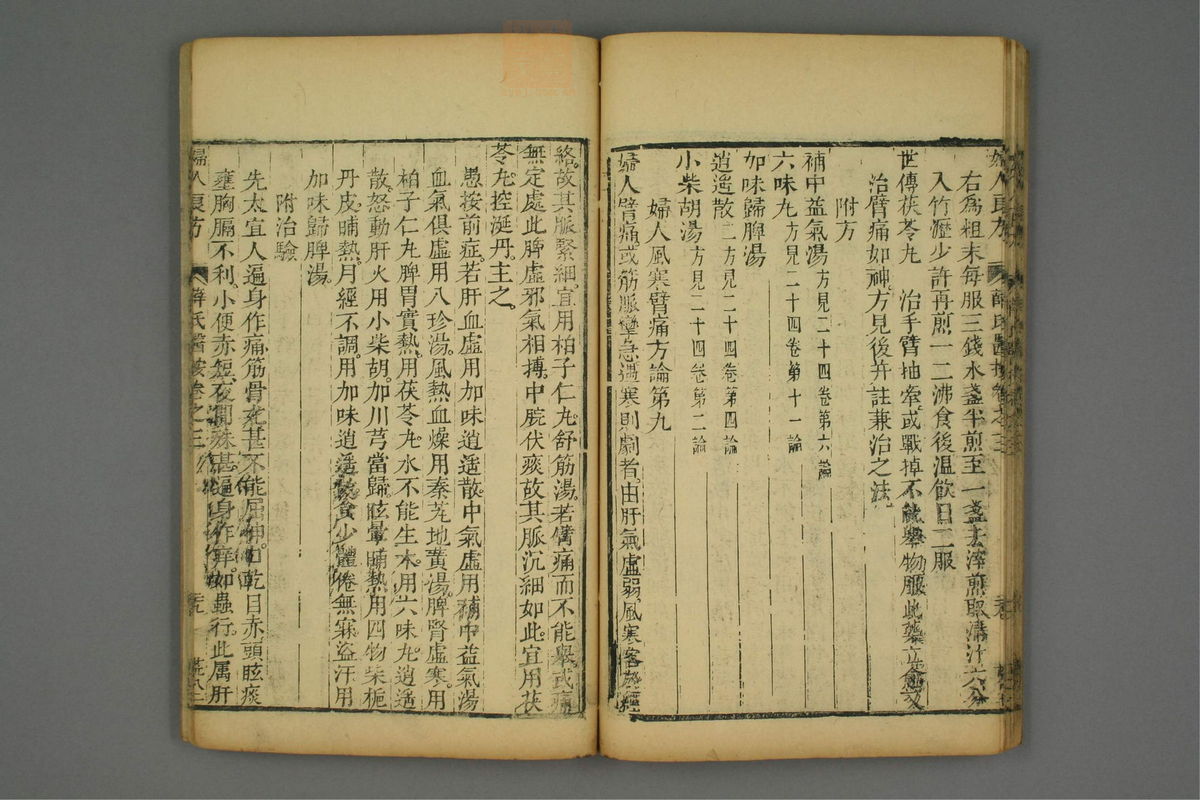 婦人良方 薛氏醫按卷之三
右為粗末每服三錢水盞半煎至一盞去滓煎取清汁六分
入竹瀝少許再煎一二沸食後温飲日二服
世傳茯苓丸 治手臂抽牽或戰掉不能舉物服此藥立愈又
治臂痛如神方見後并註兼治之法
附方
補中益氣湯方見二十四卷第六論
六味丸方見二十四卷第十一論
加味歸脾湯
逍遥散二方見二十四卷第四論
小柴胡湯方見二十四卷第二論
婦人風寒臂痛方論第九
婦人臂痛或筋脈攣急遇寒則劇者由肝氣虛弱風寒客於經
絡故其脈緊細宜用柏子仁丸舒筋湯若臂痛而不能舉或痛
無定處此脾虛邪氣相摶中脘伏痰故其脈沉細如此宜用茯
苓丸控涎丹主之
愚按前症若肝血虛用加味逍遥散中氣虛用補中益氣湯
血氣俱虛用八珍湯風熱血燥用秦艽地黃湯脾腎虛寒用
柏子仁丸脾胃實熱用茯苓丸水不能生木用六味丸逍遥
散怒動肝火用小柴胡加川芎當歸眩暈晡熱用四物柴梔
丹皮晡熱月經不調用加味逍遥散食少體倦無寐盜汗用
加味歸脾湯
附治驗
先太宜人遍身作痛筋骨尤甚不能屈伸口乾目赤頭眩痰
壅胸膈不利小便赤短夜間殊甚遍身作痒如蟲行此属肝
婦人良方 薛氏醫按卷之三